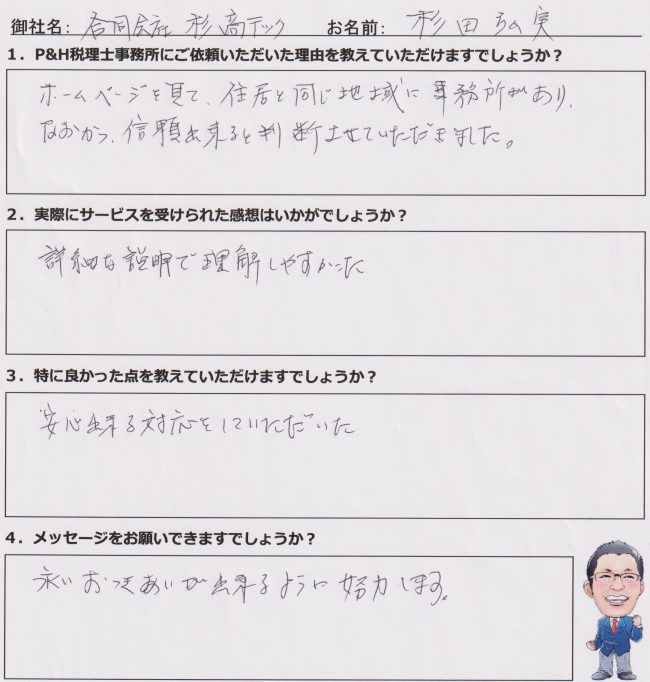 御社名: 合同会社 杉高テック お名前: 杉田 弘実
1．P&H税理士事務所にご依頼いただいた理由を教えていただけますでしょうか？
ホームページを見て、住居と同じ地域に事務所があり、
なおかつ、信頼出来ると判断させていただきました。
2．実際にサービスを受けられた感想はいかがでしょうか？
詳細な説明で理解しやすかった
3．特に良かった点を教えていただけますでしょうか？
安心出来る対応をしていただいた
4．メッセージをお願いできますでしょうか？
永いおつきあいが出来るように努力します。